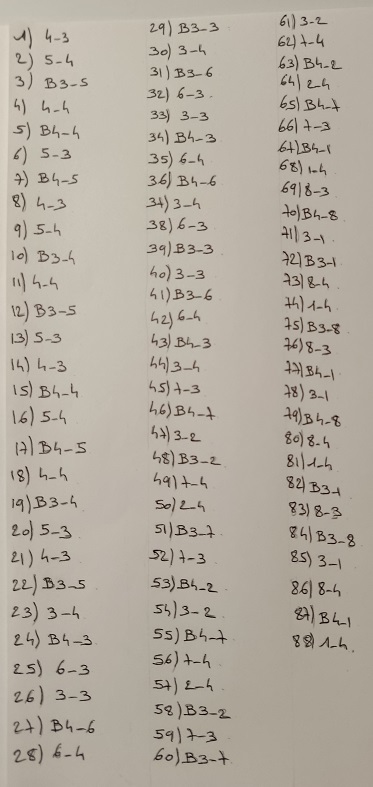 1) 4-3
2) 5-4
3) B3-5
4) 4-4
5) B4-4
6) 5-3
7) B4-5
8) 4-3
9) 5-4
10) B3-4
11) 4-4
12) B3-5
13) 5-3
14) 4-3
15) B4-4
16) 5-4
17) B4-5
18) 4-4
19) B3-4
20) 5-3
21) 4-3
22) B3-5
23) 3-4
24) B4-3
25) 6-3
26) 3-3
27) B4-6
28) 6-4
29) B3-3
30) 3-4
31) B3-6
32) 6-3
33) 3-3
34) B4-3
35) 6-4
36) B4-6
37) 3-4
38) 6-3
39) B3-3
40) 3-3
41) B3-6
42) 6-4
43) B4-3
44) 3-4
45) 7-3
46) B4-7
47) 3-2
48) B3-2
49) 7-4
50) 2-4
51) B3-7
52) 7-3
53) B4-2
54) 3-2
55) B4-7
56) 7-4
57) 2-4
58) B3-2
59) 7-3
60) B3-7
61) 3-2
62) 7-4
63) B4-2
64) 2-4
65) B4-7
66) 7-3
67) B4-1
68) 1-4
69) 8-3
70) B4-8
71) 3-1
72) B3-1
73) 8-4
74) 1-4
75) B3-8
76) 8-3
77) B4-1
78) 3-1
79) B4-8
80) 8-4
81) 1-4
82) B3-1
83) 8-3
84) B3-8
85) 3-1
86) 8-4
87) B4-1
88) 1-4.